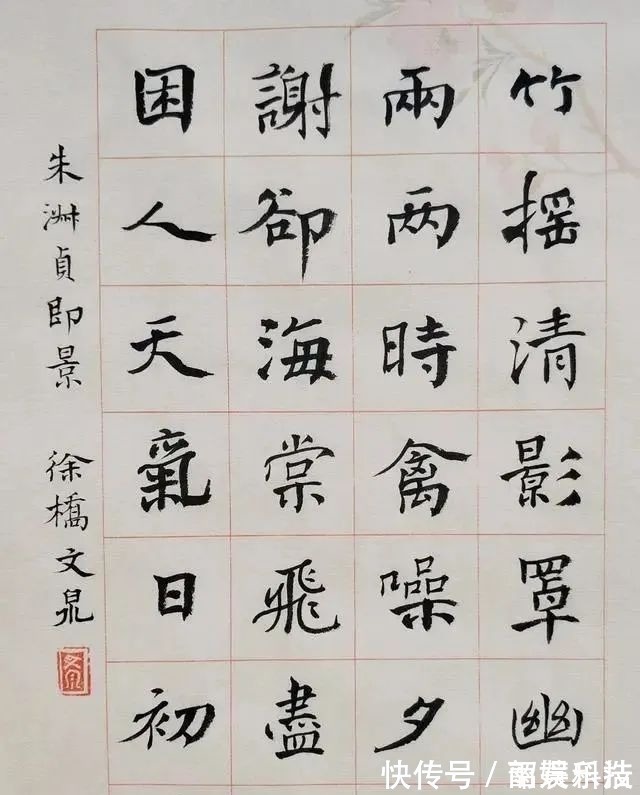 竹摇清影罩幽
兩两時禽噪夕
謝卻海棠飛盡
困人天氣日初
朱淑貞即景 徐橋文泉
快传号 /